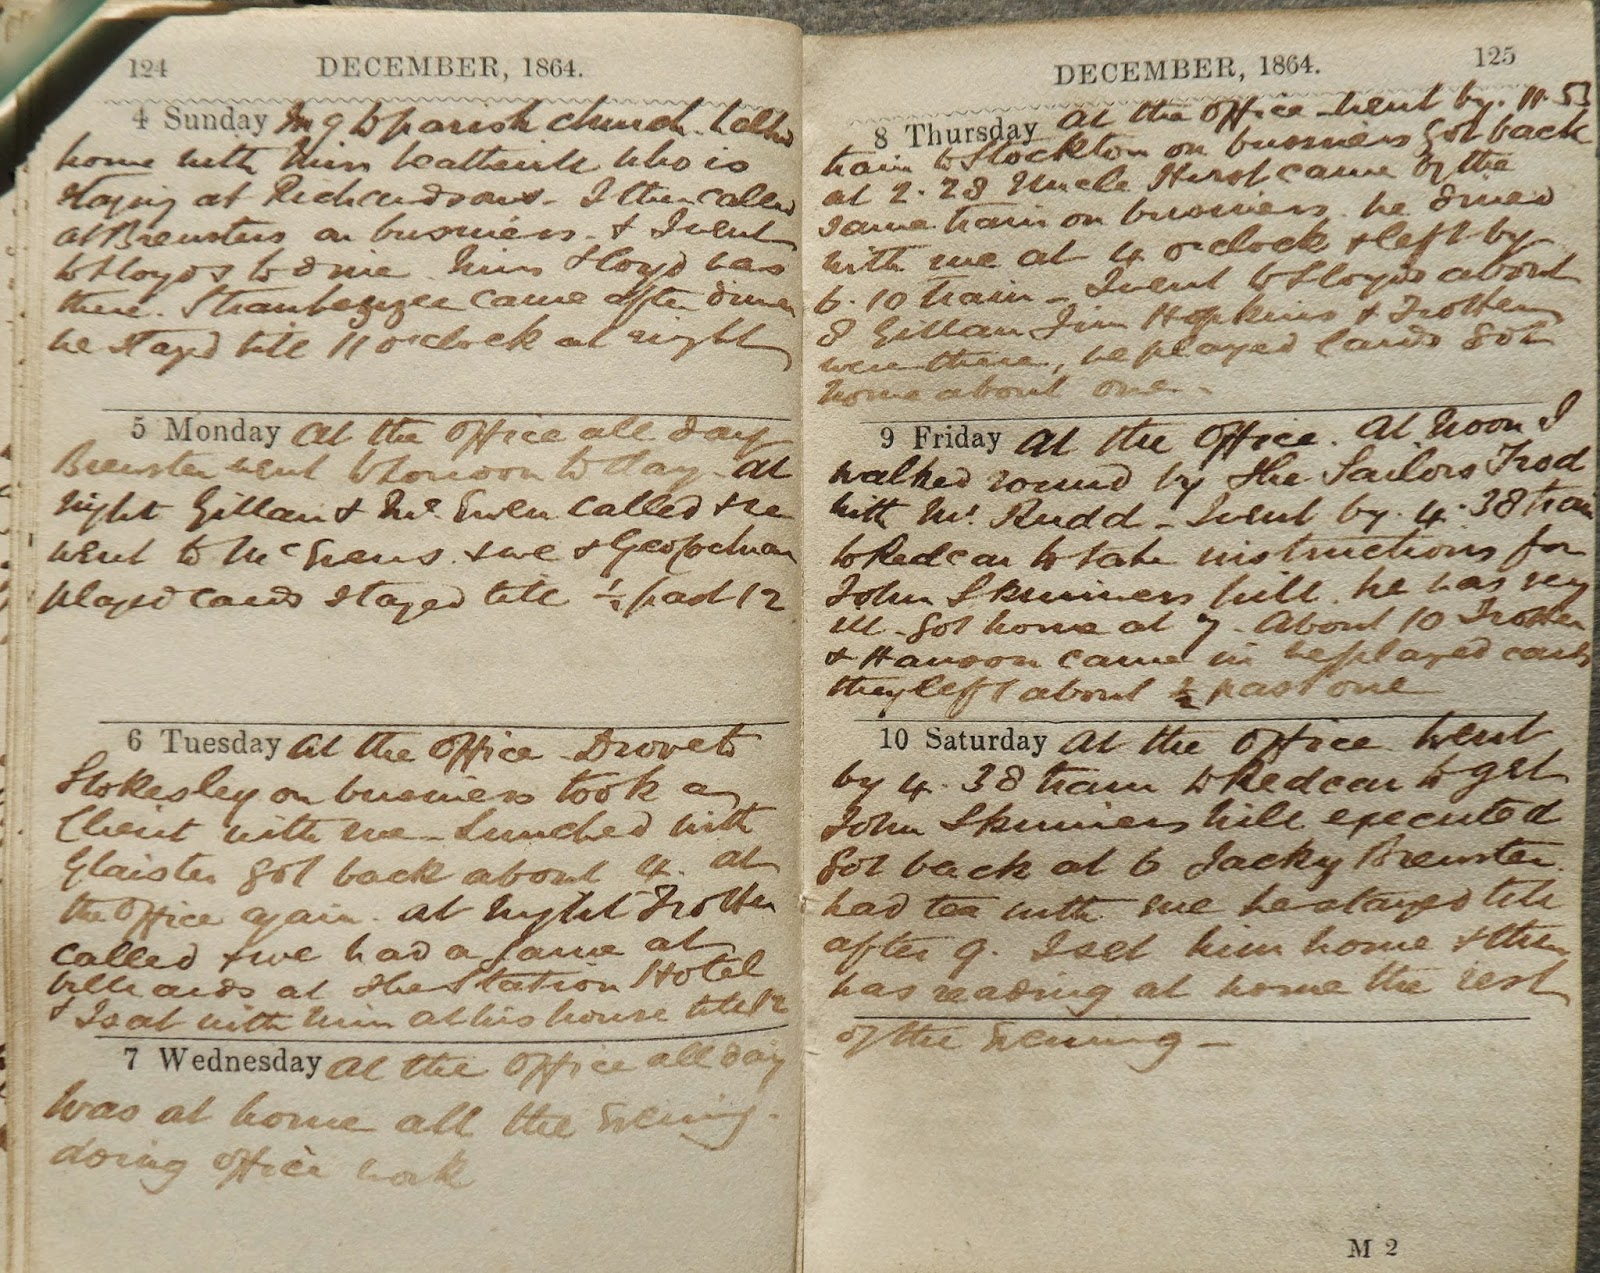 124
DECEMBER, 1864.
4 Sunday Mng to parish church. Walked
home with Miss who is
staying at Richardsons - I then called
at Brewsters on business - & I went
to Lloyds to dine Miss Lloyd was
there. Straubenzee came after dinner
he stayed till 11 o'clock at night
5 Monday At the Office all day
Brewster went to London to day - at
night Gillan & Mc Ewen called & we
went to McEwens & we & Geo
played cards stayed till ½ past 12
6 Tuesday At the Office - Drove to
Stokesley on business took a
Client with me - Lunched with
Glaister got back about 4. at
the Office again. At Night Trotter
called & we had a game at
billiards at the Station Hotel
& I sat with him at his house till 12
7 Wednesday At the Office all day
Was at home all the Evening -
doing office work
DECEMBER, 1864.
125
8 Thursday At the Office - Went by 11.53
train to Stockton on business got back
at 2.28 Uncle Hirst came by the
same train on business. he dined
with me at 4 o'clock & left by
6.10 train - I went to Lloyds about
8 Gillan Jim Hopkins & Trotter
were there, we played cards got
home about one -
9 Friday At the Office. At Noon I
walked round by the Sailors Trod
with Mr. Rudd - I went by 4.38 train
to Redcar to take instructions for
John Skinners Will. he was very
ill - got home at 7 - About 10 Trotter
& Hanson came in we played cards
they left about ½ past one
10 Saturday At the Office went
by 4.38 train to Redcar to get
John Skinners Will executed
got back at 6 Jacky Brewster
had tea with me he stayed till
after 9. I set him home & then
was reading at home the rest
of the Evening -
M 2